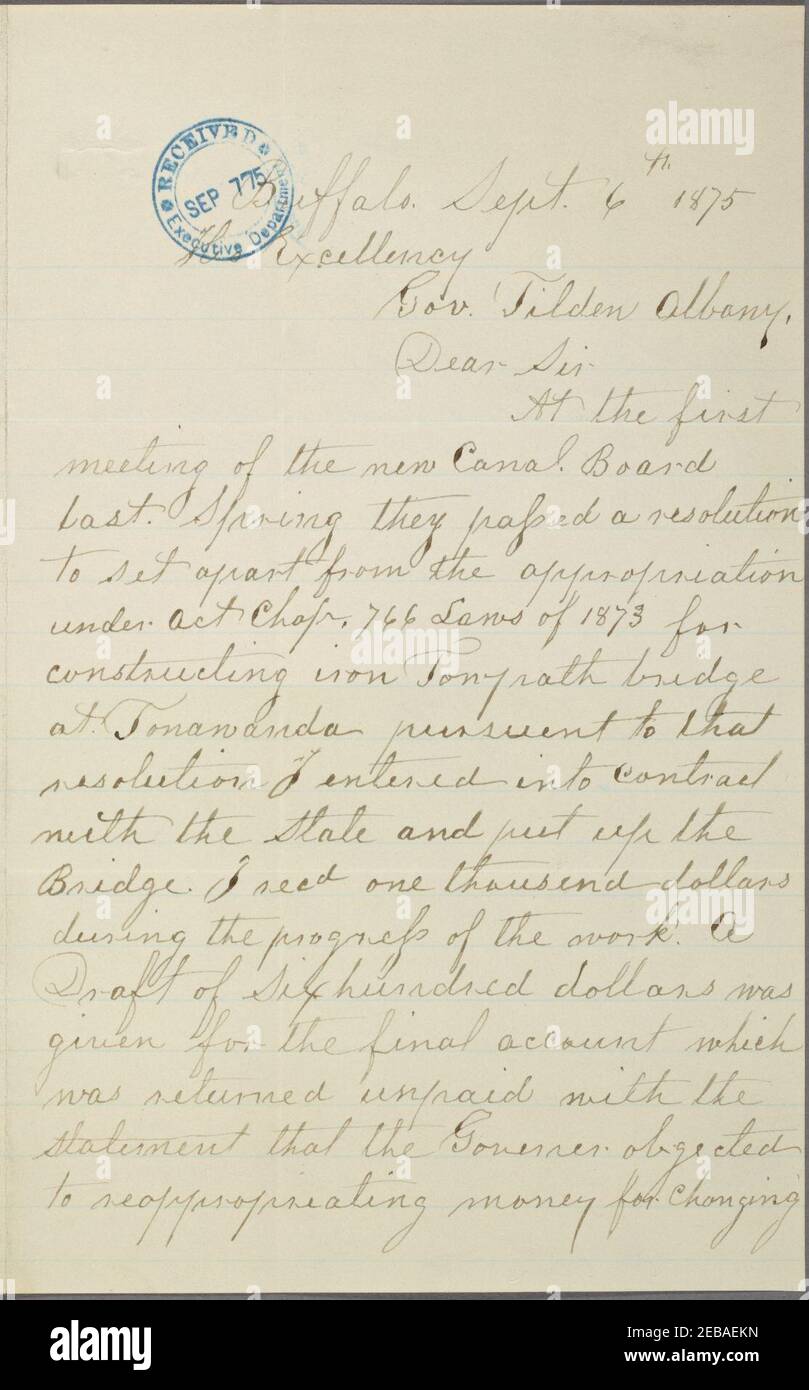 RECEIVED
SEP 7 75
Executive Department
Buffalo. Sept. 6th 1875
His Excellency
Gov. Tilden Albany.
Dear Sir
At the first
meeting of the new Canal. Board
last. Spring they passed a resolution
to set apart from the appropriation
under act Chap. 766 Laws of 1873 for
constructing iron Towpath bridge
at. Tonawanda pursuent to that
resolution I entered into contract
with the State and put up the
Bridge. I recd one thousend dollars
during the progress of the work. A
Draft of Six hundred dollars was
given for the final account which
was returned unpaid with the
statement that the Governer obgected
to reappropriating money for changing
alamy
alamy
Image ID: 2EBAEKN
www.alamy.com